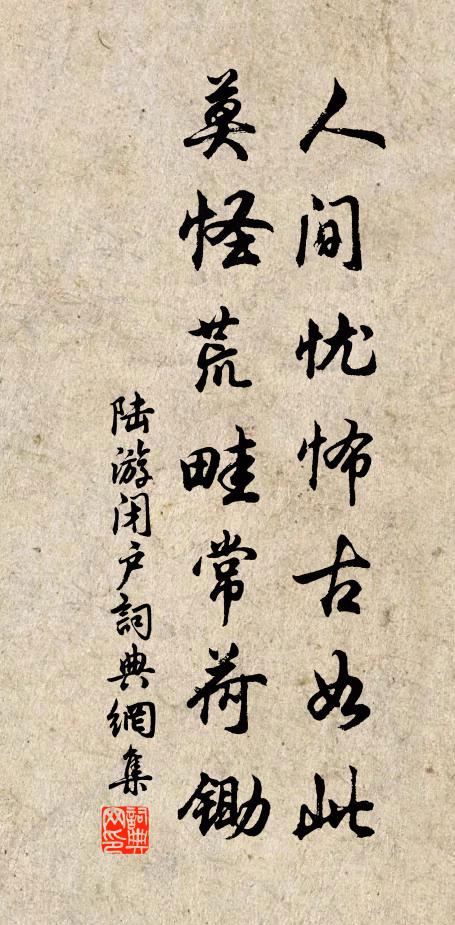 人间忧怖古如此
莫怪荒畦常荷锄
陆游闭户詞典網集
詞典网印